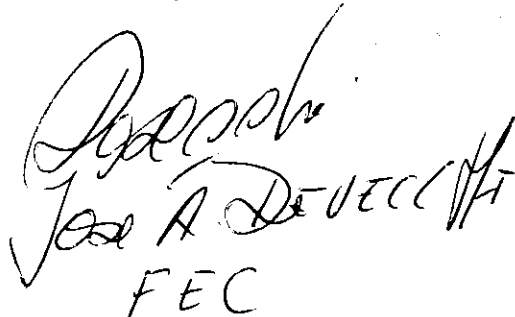 Jose A. DEVECCHI
FEC